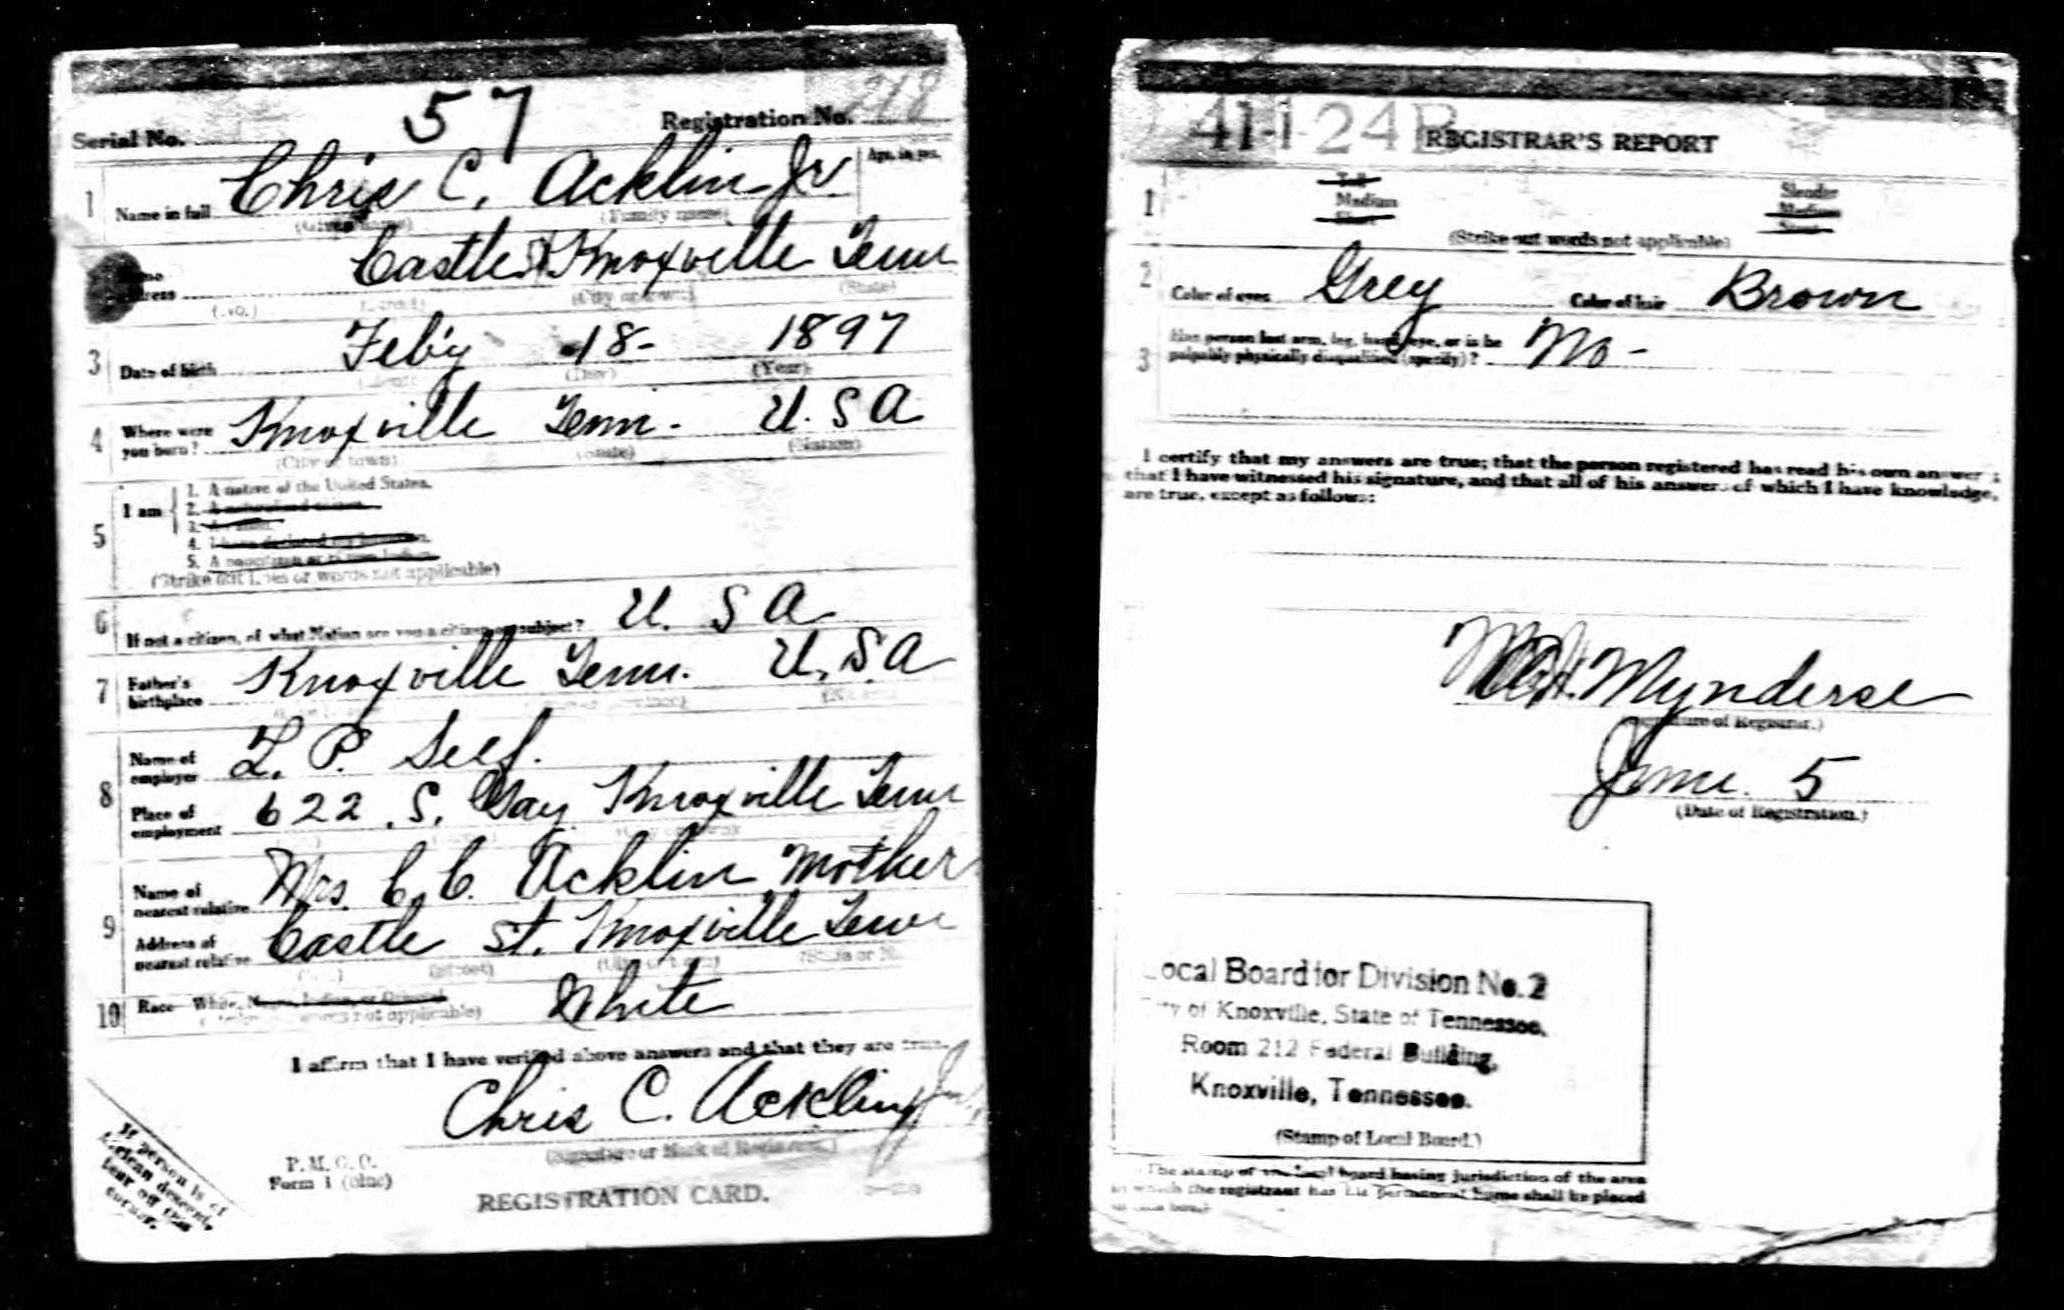 Serial No. 57 Registration No. 218
1 Name in full Chris C. Acklin Jr Age, in yrs.
(Given name) (Family name)
Castle St Knoxville Tenn
(No.) (Street) (City or town) (State)
3 Date of birth Feb'y 18- 1897
(Day) (Year)
4 Where were you born? Knoxville Tenn. U.S A
(City or town) (State) (Nation)
5 I am
1. A native of the United States.
2. A naturalized citizen.
3. An alien.
4. I have declared my intention.
5. A noncitizen or citizen Indian.
(Strike out lines or words not applicable)
6 If not a citizen, of what Nation are you a citizen or subject? U. S A
7 Father's birthplace Knoxville Tenn. U.S.A
8 Name of employer L. P. Self.
Place of employment 622 S. Gay Knoxville Tenn
9 Name of nearest relative Mrs. C. C. Acklin Mother
Address of nearest relative Castle St. Knoxville Tenn
(No.) (Street) (City or town) (State or
10 Race—White, Negro, Indian, or Oriental White
not applicable)
I affirm that I have verified above answers and that they are true.
Chris C. Acklin Jr.
(Signature or Mark of Registrant.)
P. M. G. O.
Form 1 (blue)
REGISTRATION CARD.
If person is of
African descent,
tear off this
corner.
41-1-24 B REGISTRAR'S REPORT
1 Tall Slender
Medium Medium
Short Stout
(Strike out words not applicable)
2 Color of eyes Grey Color of hair Brown
3 Has person lost arm, leg, hand, eye, or is he
palpably physically disqualified (specify)? No -
I certify that my answers are true; that the person registered has read his own answers;
that I have witnessed his signature, and that all of his answers of which I have knowledge,
are true, except as follows:
Mynderse
(Signature of Registrar.)
June 5
(Date of Registration.)
Local Board for Division No. 2
City of Knoxville, State of Tennessee,
Room 212 Federal Building,
Knoxville, Tennessee.
(Stamp of Local Board.)
The stamp of the local board having jurisdiction of the area
in which the registrant has his permanent home shall be placed
in this box.)